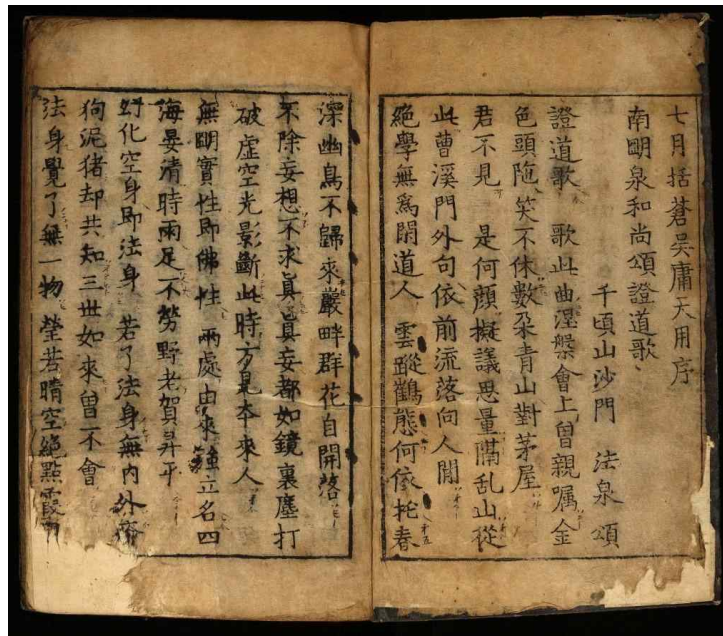 七月括蒼吳庸天用序
南明泉和尚頌證道歌
千頃山沙門 法泉 頌
證道歌 歌此曲涅槃會上曾親囑金
色頭陁笑不休數朶青山對茅屋
君不見 是何顔擬議思量隔乱山從
此曹溪門外句依前流落向人閒
絕學無爲閑道人 雲蹤鶴態何依托春
深幽鳥不歸來巖畔群花自開落
不除妄想不求眞 眞妄都如鏡裏塵打
破虛空光影斷此時方見本來人
無明實性卽佛性 兩處由來強立名四
海晏清時雨足不勞野老賀昇平
幻化空身卽法身 若了法身無內外
狗泥猪却共知三世如來曾不會
法身覺了無一物 瑩若晴空絕點霞